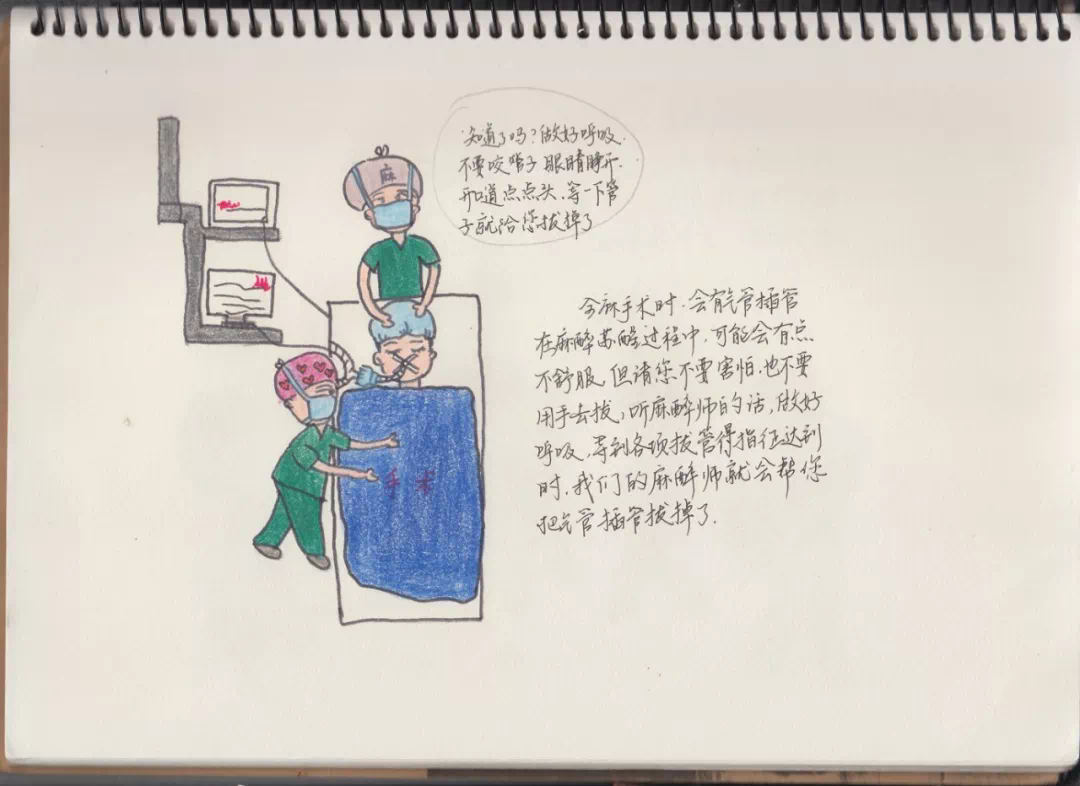 麻
知道了吗?做好呼吸.
不要咬管子 眼睛睁开.
知道点点头.等一下管
子就给您拔掉了
手术
全麻手术时.会有气管插管
在麻醉苏醒过程中,可能会有点
不舒服,但请您不要害怕.也不要
用手去拔,听麻醉师的话,做好
呼吸,等到各项拔管得指征达到
时.我们的麻醉师就会帮您
把气管插管拔掉了.